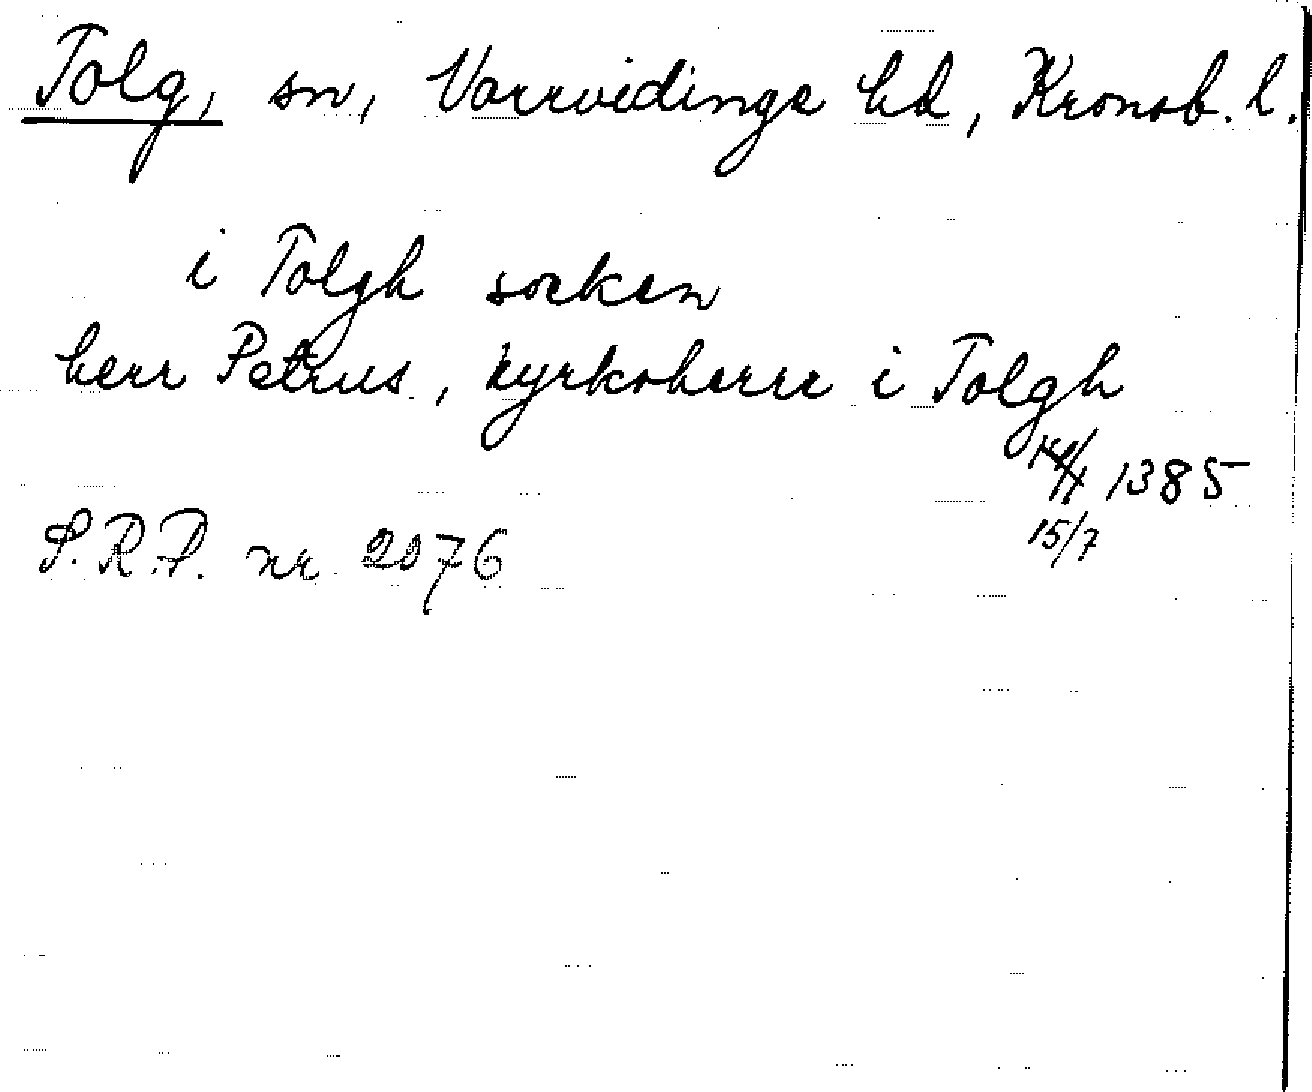 Tolg, sn, Norrvidinge hd, Kronob. l.
i Tolgh socken
herr Petrus, kyrkoherre i Tolgh
1385
15/7
S.R.P. nr 2076